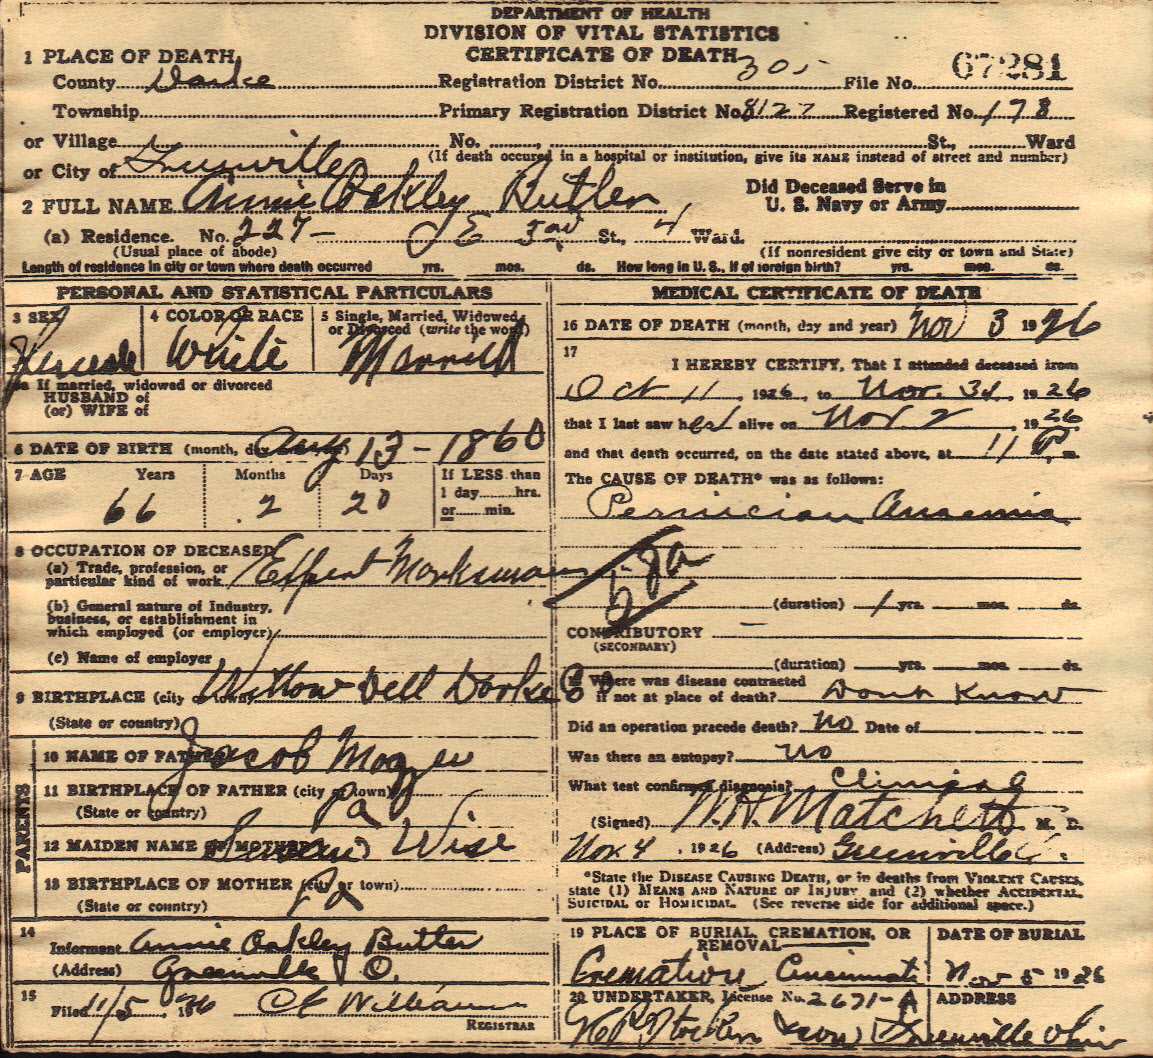 DEPARTMENT OF HEALTH
DIVISION OF VITAL STATISTICS
CERTIFICATE OF DEATH
1 PLACE OF DEATH
County Darke Registration District No. 305 File No. 67281
Township Primary Registration District No. 8127 Registered No. 178
or Village No. , St., Ward
(If death occured in a hospital or institution, give its NAME instead of street and number)
or City of Greenville
2 FULL NAME Annie Oakley Butler
Did Deceased Serve in
U. S. Navy or Army
(a) Residence. No. 227- E 3rd St., 4 Ward.
(Usual place of abode) (If nonresident give city or town and State)
Length of residence in city or town where death occurred yrs. mos. ds. How long in U. S., if of foreign birth? yrs. mos. ds.
PERSONAL AND STATISTICAL PARTICULARS
3 SEX 4 COLOR OR RACE 5 Single, Married, Widowed,
or Divorced (write the word)
Female White Married
5a If married, widowed or divorced
HUSBAND of
(or) WIFE of
6 DATE OF BIRTH (month, day Aug 13-1860
7 AGE Years Months Days If LESS than
1 day hrs.
or min.
66 2 20
8 OCCUPATION OF DECEASED
(a) Trade, profession, or
particular kind of work Expert Marksman
(b) General nature of Industry,
business, or establishment in
which employed (or employer)
(c) Name of employer
9 BIRTHPLACE (city or town) Willow Dell Darke Co
(State or country)
PARENTS
10 NAME OF FATHER Jacob Mozee
11 BIRTHPLACE OF FATHER (city or town)
(State or country) Pa
12 MAIDEN NAME OF MOTHER Susan Wise
13 BIRTHPLACE OF MOTHER (city or town)
(State or country) Pa
14
Informant Annie Oakley Butler
(Address) Greenville O.
15
Filed 11/5, 1926 Williams
REGISTRAR
MEDICAL CERTIFICATE OF DEATH
16 DATE OF DEATH (month, day and year) Nov 3 1926
17
I HEREBY CERTIFY, That I attended deceased from
Oct 11, 1926, to Nov. 3d, 1926
that I last saw her alive on Nov 2, 1926
and that death occurred, on the date stated above, at 11 P m.
The CAUSE OF DEATH* was as follows:
Pernician Anaemia
58a
(duration) 1 yrs. mos. ds.
CONTRIBUTORY
(SECONDARY)
(duration) yrs. mos. ds.
18 Where was disease contracted
if not at place of death? Dont Know
Did an operation precede death? No Date of
Was there an autopsy? No
What test confirmed diagnosis? Clinical
(Signed) W. A. Matchett M. D.
Nov. 4, 1926 (Address) Greenville O.
*State the DISEASE CAUSING DEATH, or in deaths from VIOLENT CAUSES,
state (1) MEANS AND NATURE OF INJURY and (2) whether ACCIDENTAL,
SUICIDAL or HOMICIDAL. (See reverse side for additional space.)
19 PLACE OF BURIAL, CREMATION, OR
REMOVAL
DATE OF BURIAL
Cremation Cincinnati Nov 5 1926
20 UNDERTAKER, License No. 2671-A ADDRESS
Stocker & son Greenville Ohio